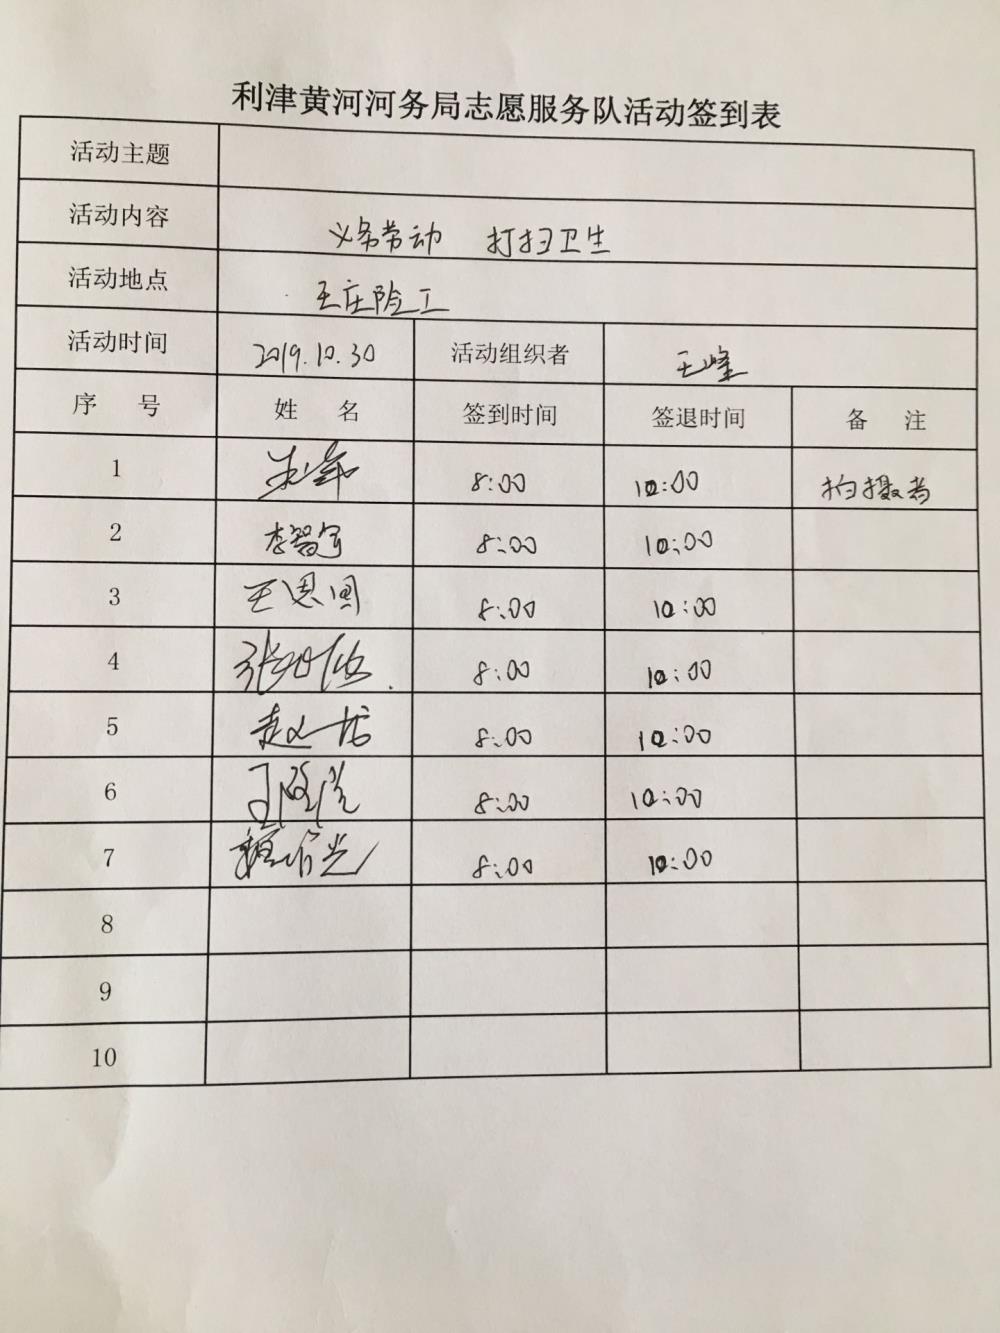 利津黄河河务局志愿服务队活动签到表
活动主题
活动内容 义务劳动 打扫卫生
活动地点 王庄险工
活动时间 2019.10.30 活动组织者 王峰
序 号 姓 名 签到时间 签退时间 备 注
1 8:00 10:00 拍摄者
2 李智宇 8:00 10:00
3 王恩国 8:00 10:00
4 8:00 10:00
5 8:00 10:00
6 8:00 10:00
7 8:00 10:00
8
9
10